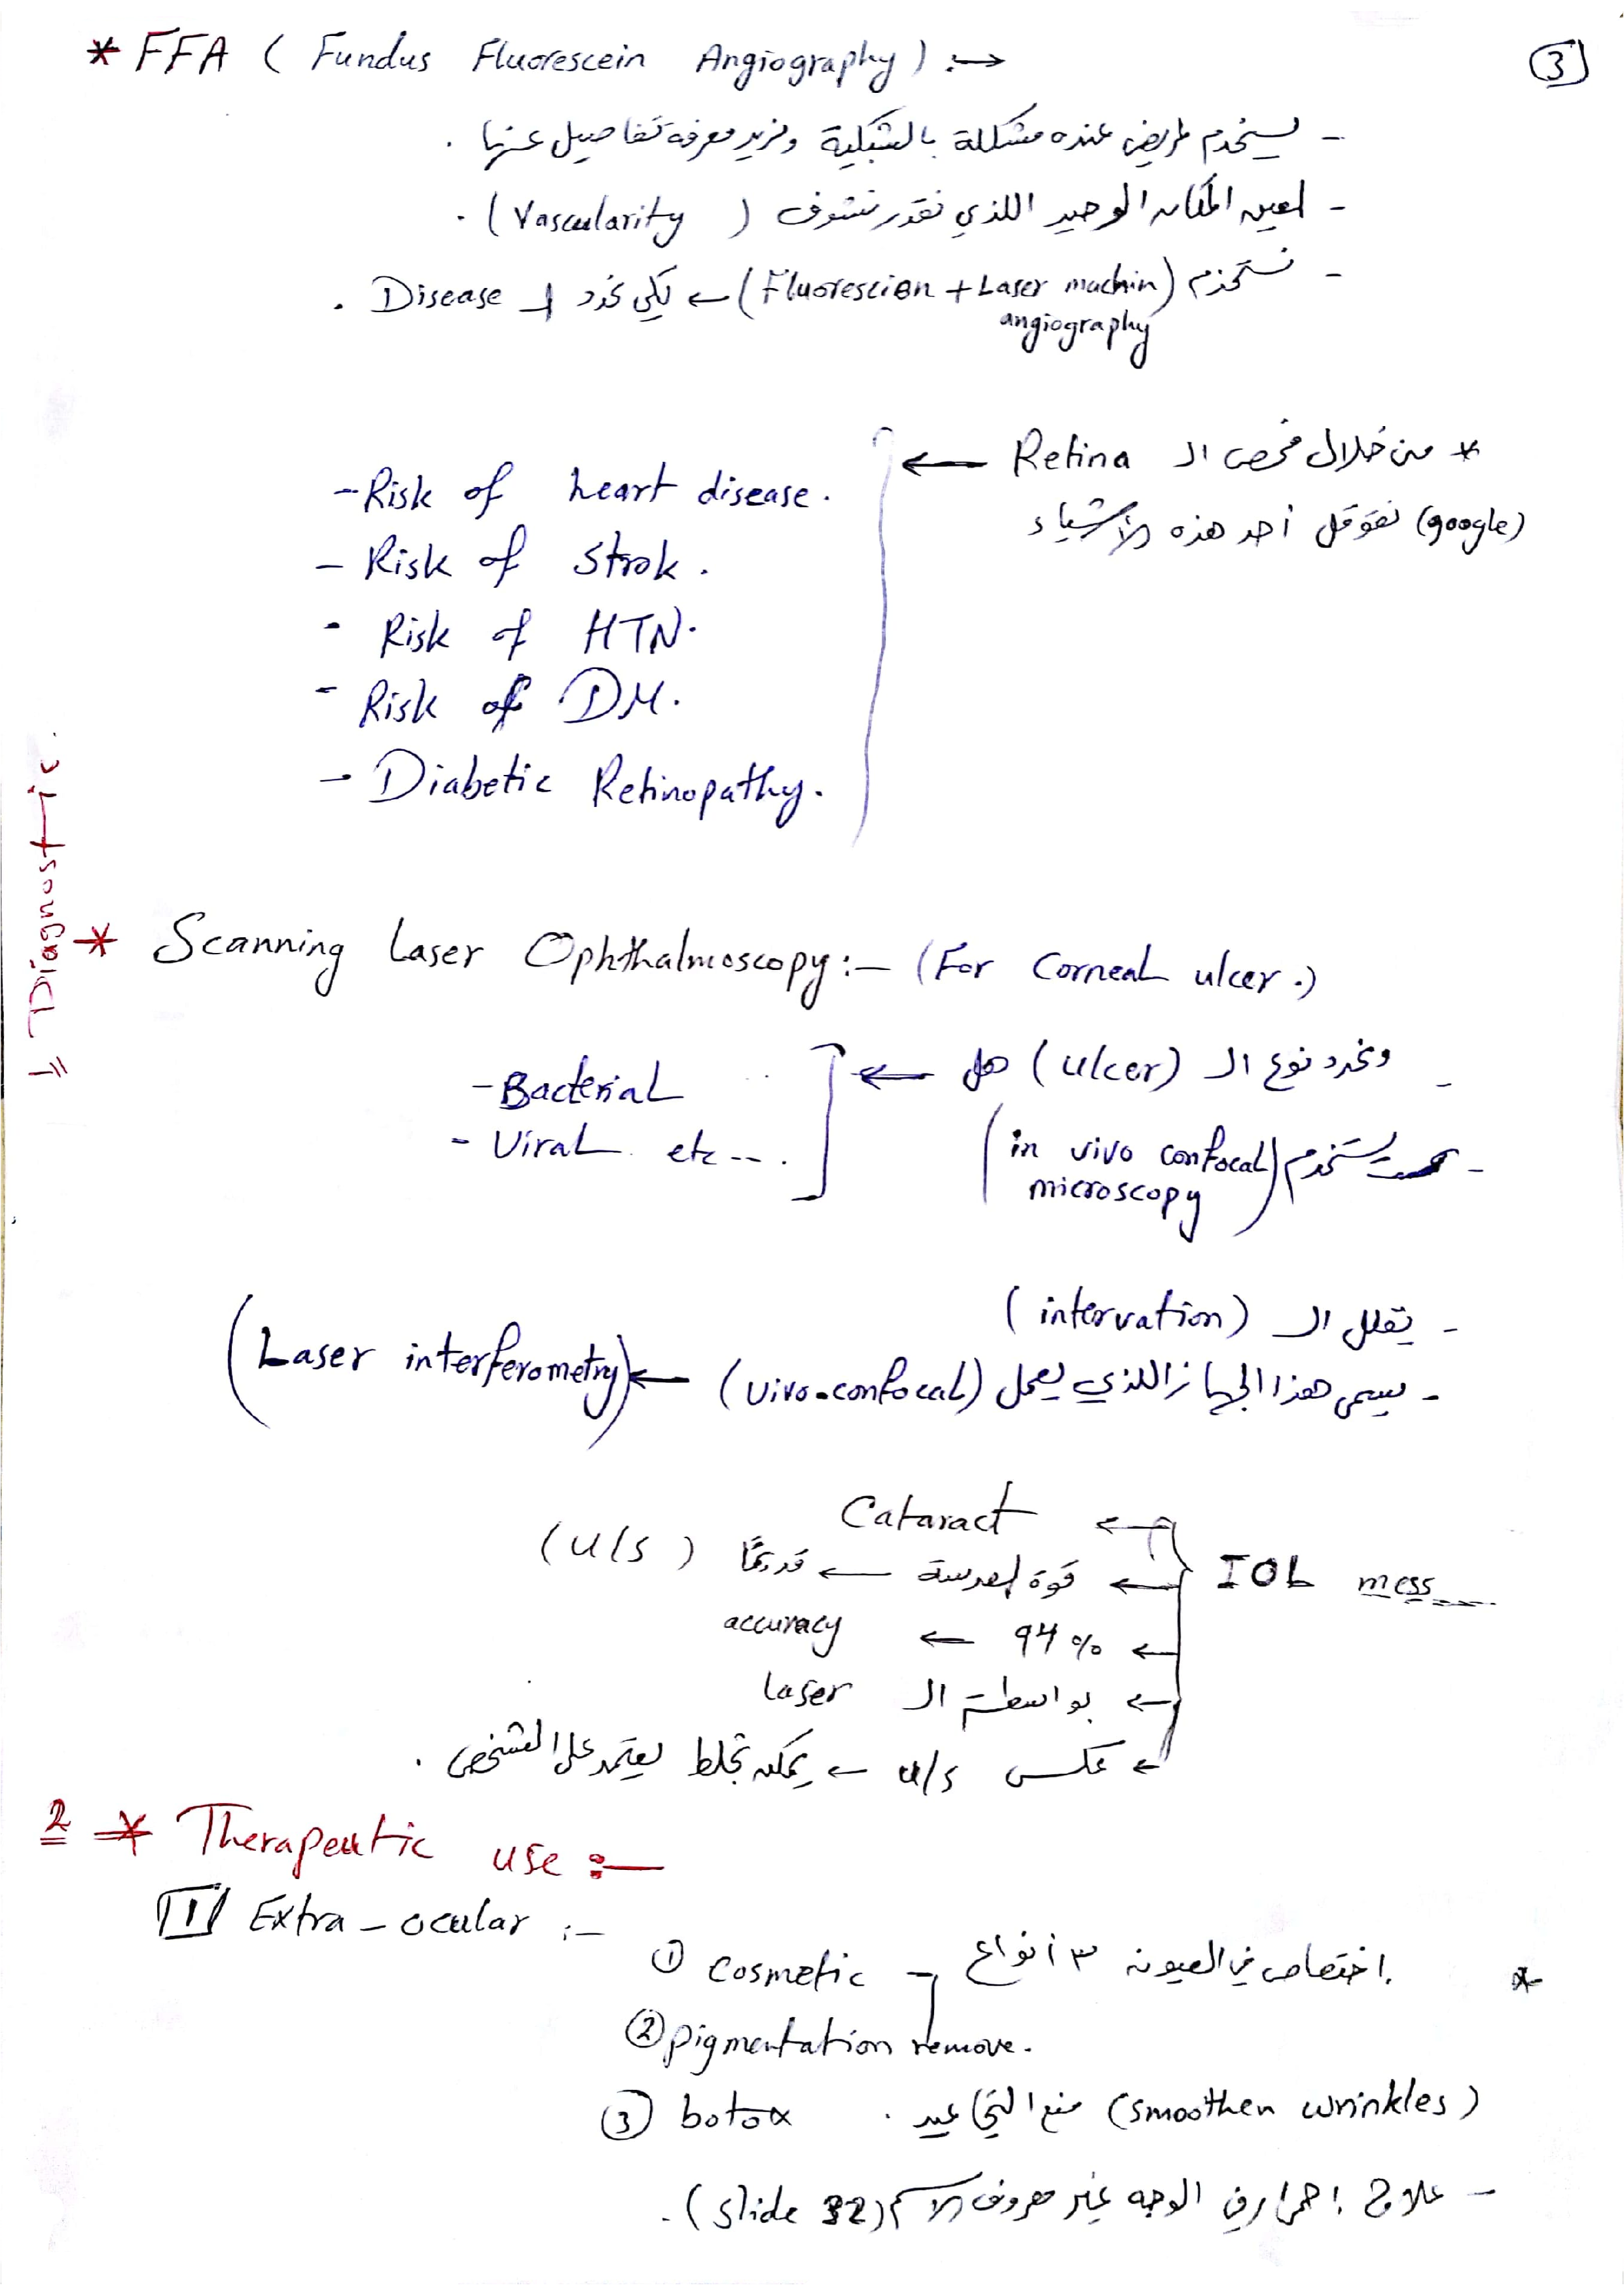 * FFA ( Fundus Fluorescein Angiography ) :→
③
- يستخدم لمريض عنده مشكلة بالشبكية ونريد معرفة تفاصيل عنها .
- العين المكان الوحيد اللذي نقدر نشوف ( Vascularity ) .
- نستخدم (Fluorescien + Laser machin angiography) ← لكي نحدد ال Disease .
* من خلال فحص ال Retina ←
(google) أحد هذه الأشياء
- Risk of heart disease.
- Risk of Strok.
- Risk of HTN.
- Risk of DM.
- Diabetic Retinopathy.
1 Diagnostic.
* Scanning Laser Ophthalmoscopy:- (For Corneal ulcer.)
- ونحدد نوع ال (ulcer) هل ←
- Bacterial
- Viral etc --- .
- يستخدم (in vivo confocal microscopy)
- يقلل ال (intervation)
- يسمى هذا الجهاز اللذي يعمل (vivo-confocal) ← (Laser interferometry)
IOL mess
← Cataract
← قوة العدسة ← قديمًا (u/s)
← 94% ← accuracy
← بواسطة ال laser
← عكس u/s ← يمكن تغلط يعتمد على الشخص .
2 * Therapeutic use :-
1 Extra - ocular :-
* اختصاص في العيون ٣ أنواع
① cosmetic
② pigmentation remove.
③ botox (smoothen wrinkles) منع التجاعيد .
- علاج احمرار في الوجه غير معروف الاسم (slide 32).